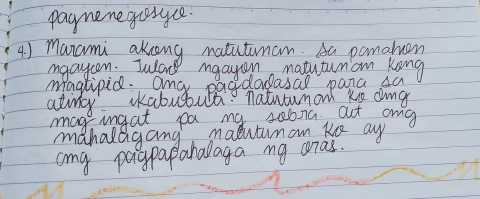 pagnenegosyo.
4.) Marami akong natutunan. Sa panahon
ngayon. Tulad ngayon natutunan kong
magtipid. Ang pagdadasal para sa
ating ikabubuti. Natutunan ko ding
mag ingat pa ng sobra at ang
mahalagang natutunan ko ay
ang pagpapahalaga ng oras.